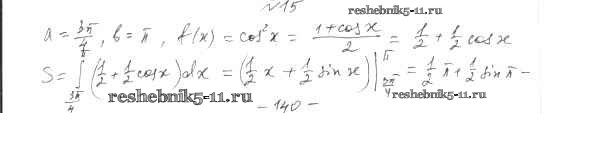 №15
reshebnik5-11.ru
a = 3π/4, b = π, f(x) = cos²x = (1+cos x)/2 = 1/2 + 1/2 cos x
S = ∫_{3π/4}^{π} (1/2 + 1/2 cos x) dx = (1/2 x + 1/2 sin x) |_{3π/4}^{π} = 1/2 π + 1/2 sin π −
reshebnik5-11.ru reshebnik5-11.ru
– 140 –